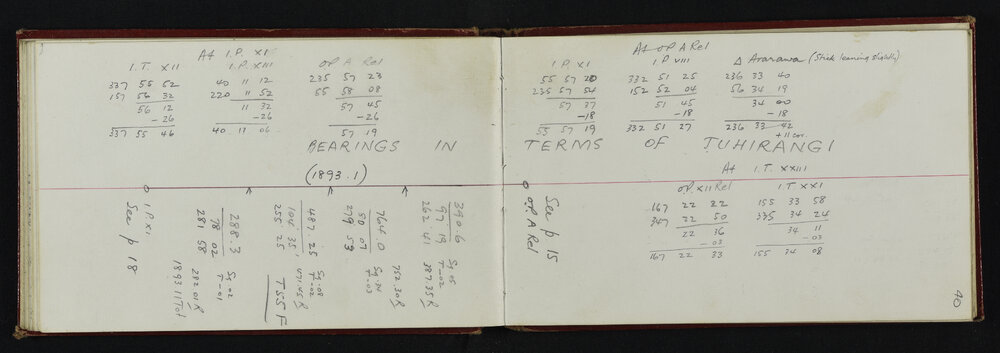 At I.P. XI
I.T. XII I.P. XIII OP A Rel
337 55 52 40 11 12 235 57 23
157 56 32 220 11 52 55 58 08
56 12 11 32 57 45
-26 -26 -26
337 55 46 40 11 06 57 19
BEARINGS IN
(1893.1)
See p 18
I.P. XI
281 58
78 02
288.3
Sg .02
T -.01
282.01
1893.11 Tot
255 25
104 35
487.25
Sg .08
T -.02
T SS F
279 53
80 07
764.0
Sg .14
T -.03
262 41
97 19
390.6
Sg .05
T -.02
At OP A Rel
I.P. XI I.P. VIII Δ Ararawa (Stick leaning slightly)
55 57 20 332 51 25 236 33 40
235 57 54 152 52 04 56 34 19
57 37 51 45 34 00
-18 -18 -18
55 57 19 332 51 27 236 33 42
+11 cor
TERMS OF TUHIRANGI
At I.T. XXIII
OP XII Rel I.T. XXI
167 22 22 155 33 58
347 22 50 335 34 24
22 36 34 11
-03 -03
167 22 33 155 34 08
See p 15
OP. A Rel
40